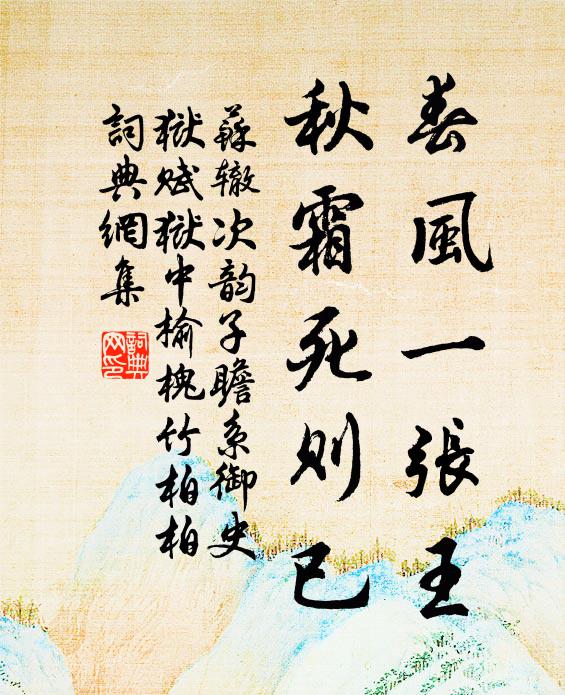 春風一張王
秋霜死則已
蘇辙次韵子瞻系御史
獄賦獄中榆槐竹柏柏
詞典網集
詞典網印